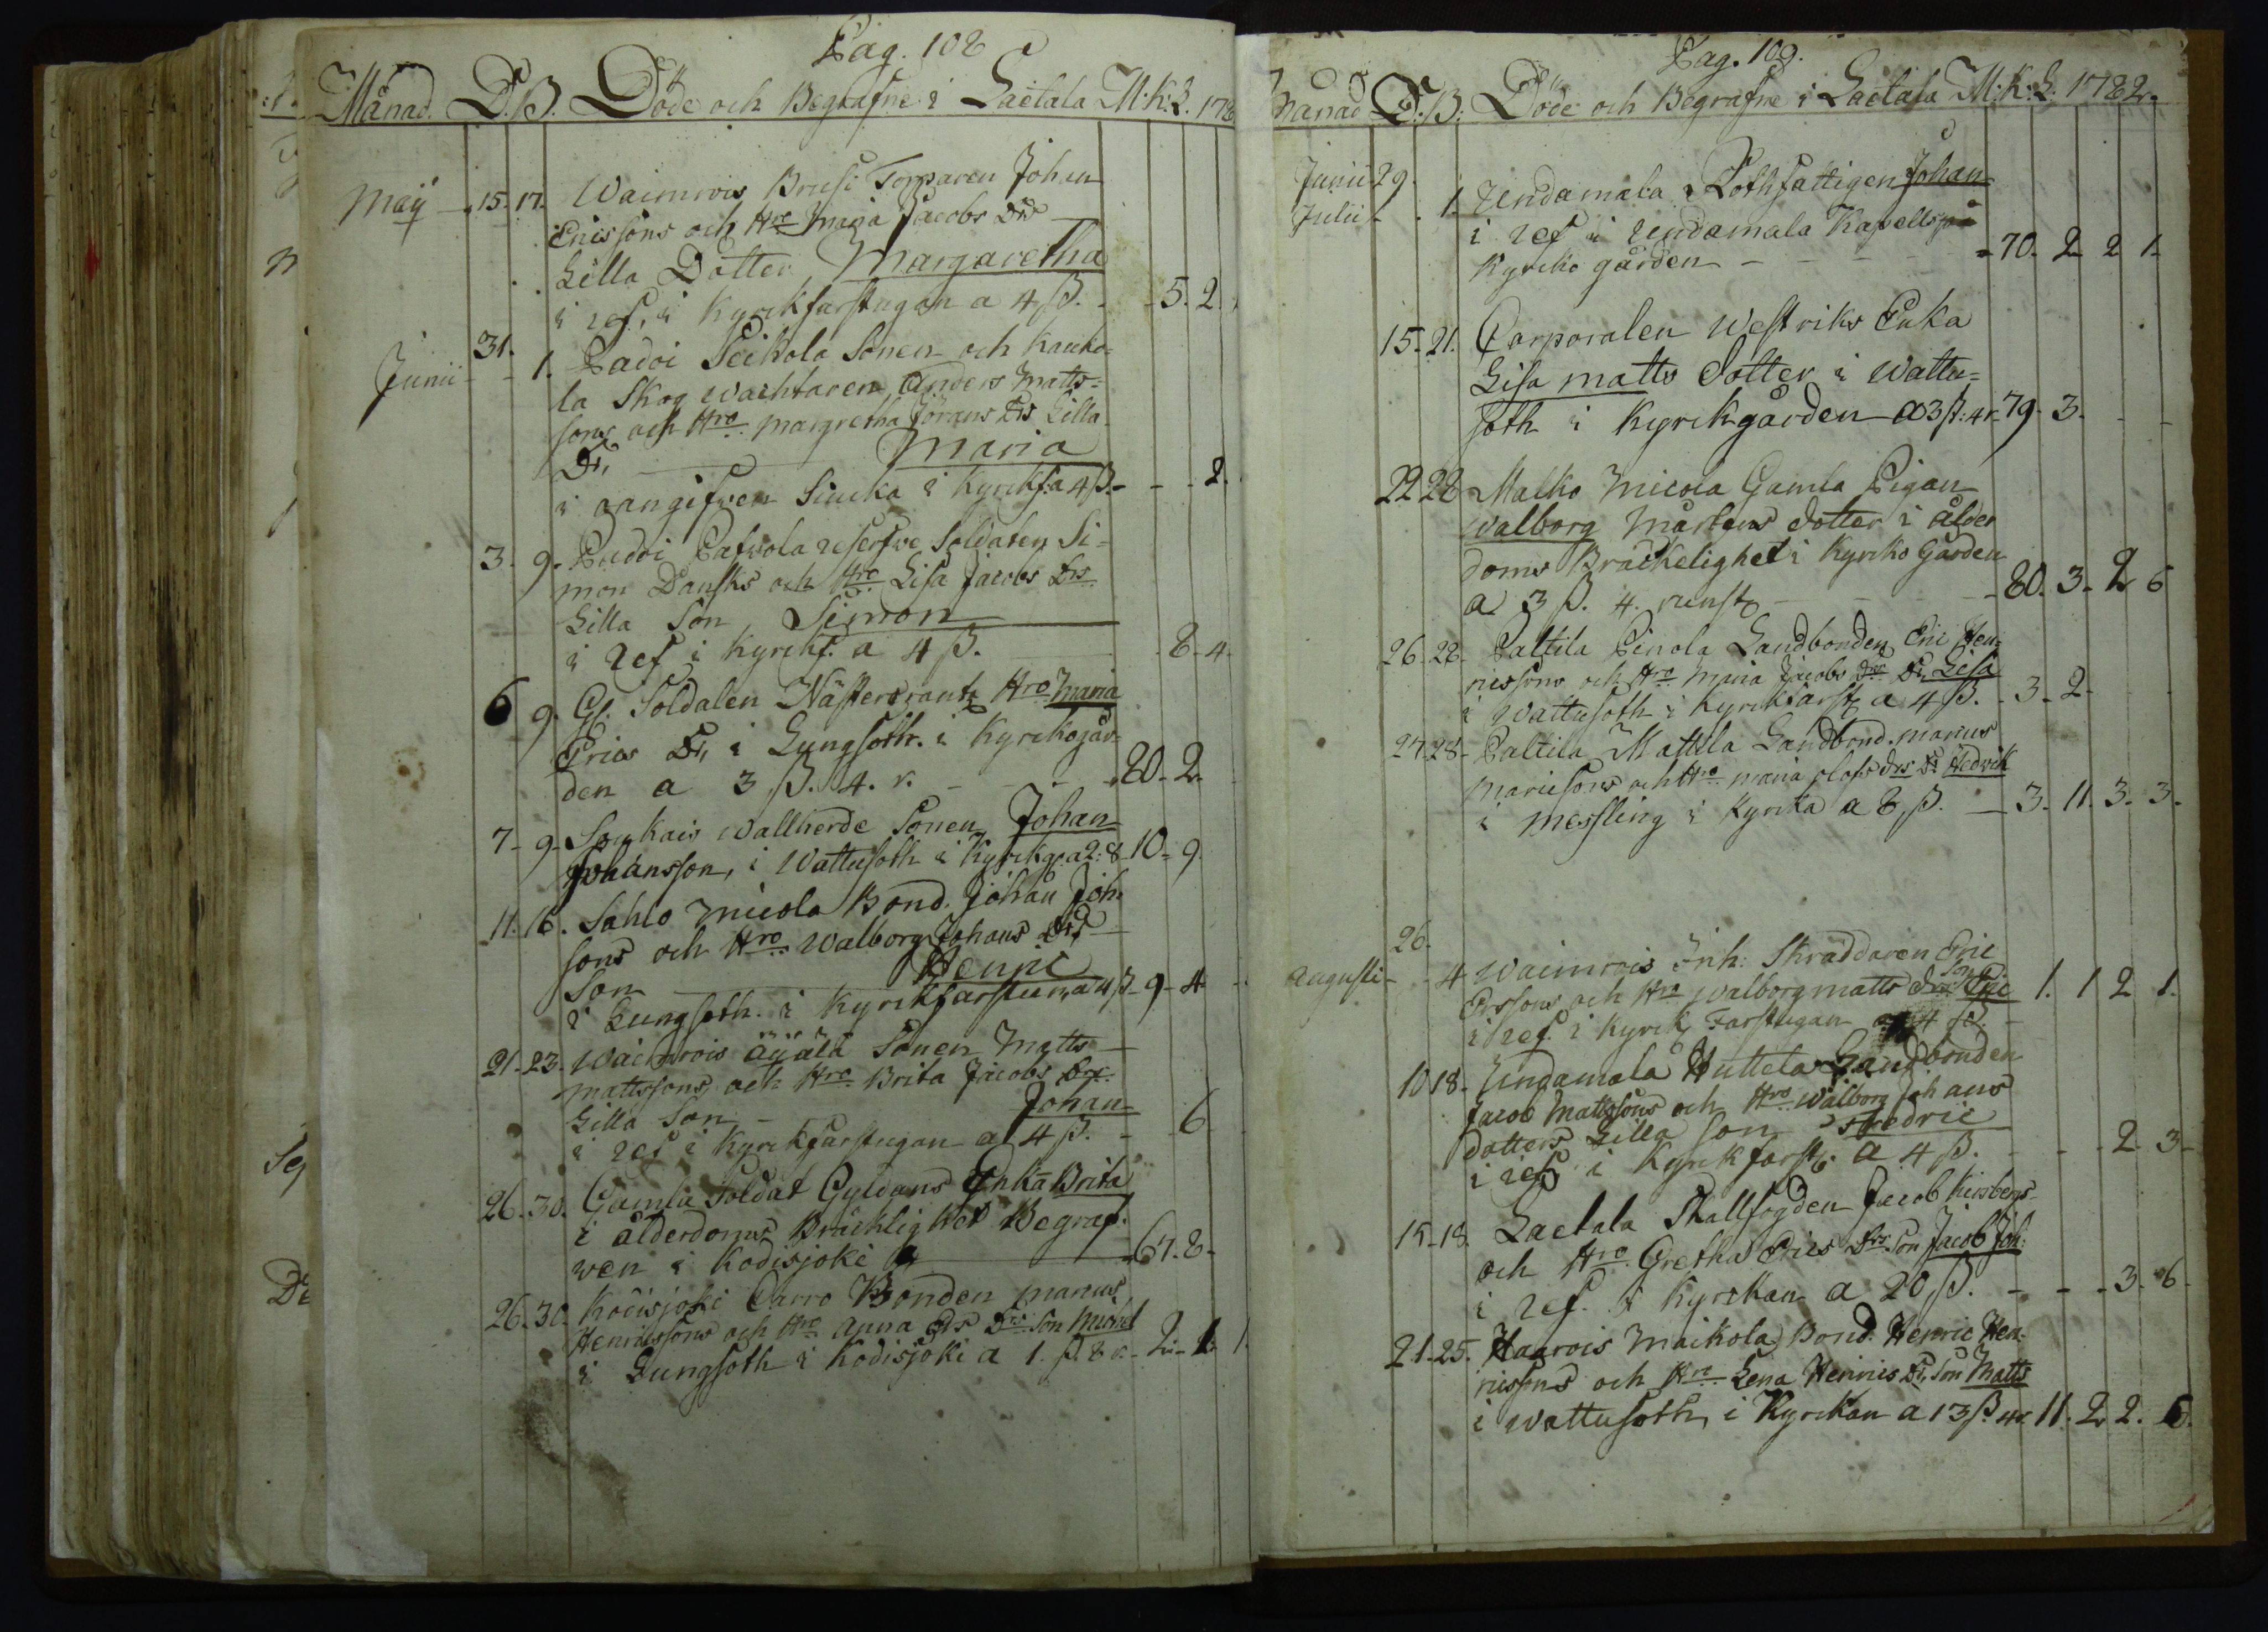 Pag. 108
Månad. D. B. Döde och Begrafne i Laetala M:K:L. 178
Maij 15. 17. Waimrois Brusi Torparen Johan
Erissons och Hro Maria Jacobs Drs
Lilla Dotter Margaretha
i ref, i Kyrckfarstugan a 4 β. 5. 2.
31.
Junii 1. Padoi Seikola Sonen och Kauko-
la Skog wachtaren Anders Matts-
sons och Hro Margretha Jörans Drs Lilla
Dr, Maria
i oangifven Siucka i Kyrckf. a 4 β. 2.
3. 9. Puddi Pafwola reserfwe Soldaten Si-
mon Dansks och Hro Lisa Jacobs Drs
Lilla Son Simon
i Ref i Kyrckf. a 4 β. 8. 4.
6 9. Gl. Soldalen Näfterrants Hro Maria
Erics Dr, i Lungsoth. i Kyrckogår-
den a 3 β. 4. r. 80. 2.
7. 9. Soukais wallherde Sonen Johan
Johansson, i Wattusoth i Kyrckg. a 2: 8 10. 9.
11. 16. Sahlo Micola Bond. Johan Joh.
sons och Hro Walborg Johans Drs
Son Henric
i Lungsoth. i Kyrckfarstun, a 4 β 9. 4.
21. 23. Waimrois Äyälä Sonen Matts
Mattssons och Hro Brita Jacobs Drs
Lilla Son Johan
i ref i Kyrckfarstugan a 4 β. 6
26. 30. Gamla Soldat Gyldans Enka Brita
i ålderdoms Bräcklighet Begraf-
wen i Kodisjoki 67. 8.
26. 30. Kodisjoki Carro Bonden Marcus
Henricssons och Hro Anna Ers Drs Son Michel
i Lungsoth i Kodisjoki a 1. β. 8 r. 2. 1. 1.
Pag. 109.
Manad D. B. Döde och Begrafne i Laetala M:K:L: 1782.
Junii 29.
Julii 1. Undamala Rothfattigen Johan
i ref i Undamala Kapells
Kyrcko gården 70. 2. 2 1.
15. 21. Corporalen Westriks Enka
Lisa Matts dotter i Wattu-
soth i Kyrckgården a 3 β: 4 r. 79. 3.
22 28 Malko Micola Gamla Pigan
Walborg Mårtens dotter i ålder
doms Bräckelighet i Kyrcko Gården
a 3 β. 4. runst. 80. 3. 2 6
26. 28. Paltila Pinola Landbonden Eric Hen-
ricssons och Hro Maria Jacobs Drs Dr, Lisa
i Wattusoth i Kyrckfarst. a 4 β. 3. 2.
27. 28. Paltila Mattila Landbond. Marcus
Maricsons och Hro Maria Olofs drs Dr Hedwik
i Messling i Kyrcka a 8 β. 3. 11. 3. 3.
26.
Augusti 4 Waimrois Inh: Skräddaren Eric
Erssons och Hro Walborg Matts drs Son Eric 1. 1 2 1.
i ref. i Kyrck Farstugan a 4 β.
10 18. Undamala Huttela Landbonden
Jacob Mattssons och Hro Walborg Johans
dotters Lilla son Fredric
i ref i Kyrckfarst. a 4 β. 2. 3.
15. 18. Laetala Skallfogden Jacob Kirsbergs
och Hro Gretha Erics Drs Son Jacob Joh:
i ref. i Kyrckan a 20 β. 3. 6.
21. 25. Haarois Maikola Bond. Henric Hen-
ricssons och Hro Lena Henrics Dr, Son Matts
i Wattusoth, i Kyrckan a 13 β. 4 r. 11. 2. 2. 6.